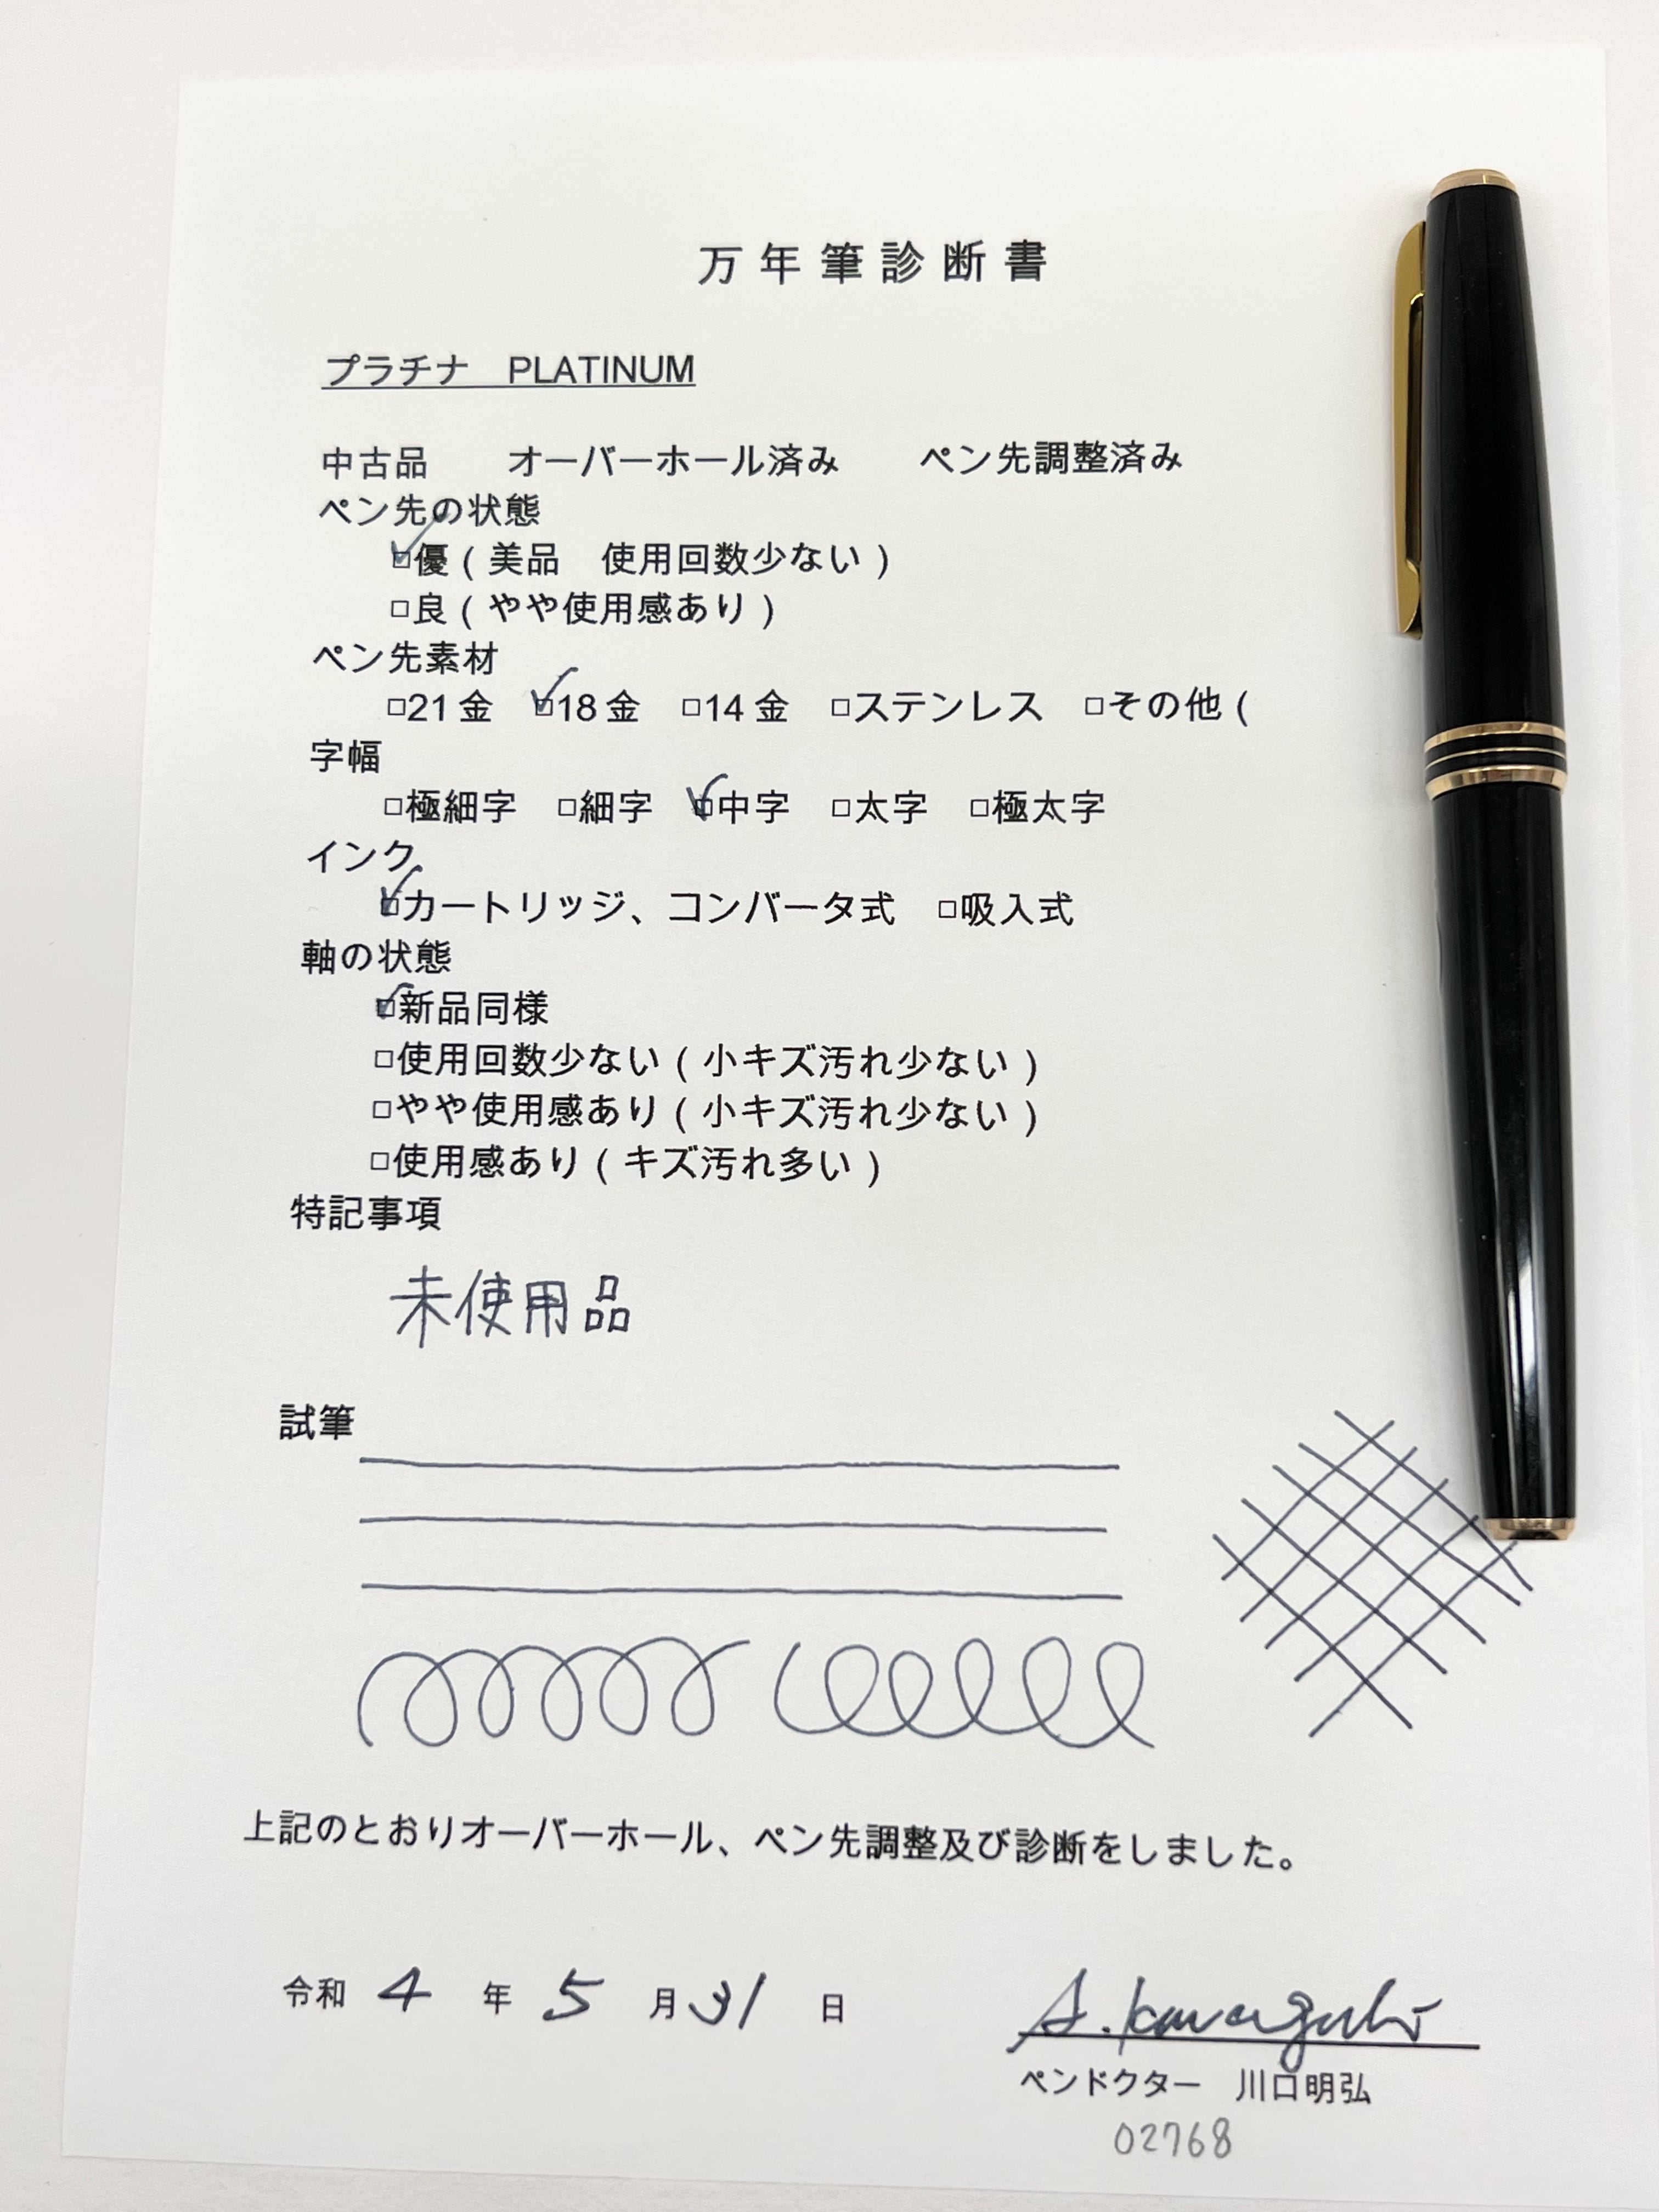 万年筆診断書
プラチナ　PLATINUM
中古品　　オーバーホール済み　　ペン先調整済み
ペン先の状態
☑優（美品　使用回数少ない）
□良（やや使用感あり）
ペン先素材
□21金　☑18金　□14金　□ステンレス　□その他（
字幅
□極細字　□細字　☑中字　□太字　□極太字
インク
☑カートリッジ、コンバータ式　□吸入式
軸の状態
☑新品同様
□使用回数少ない（小キズ汚れ少ない）
□やや使用感あり（小キズ汚れ少ない）
□使用感あり（キズ汚れ多い）
特記事項
未使用品
試筆
上記のとおりオーバーホール、ペン先調整及び診断をしました。
令和 4 年 5 月 31 日
A. Kawaguchi
ペンドクター　川口明弘
02768